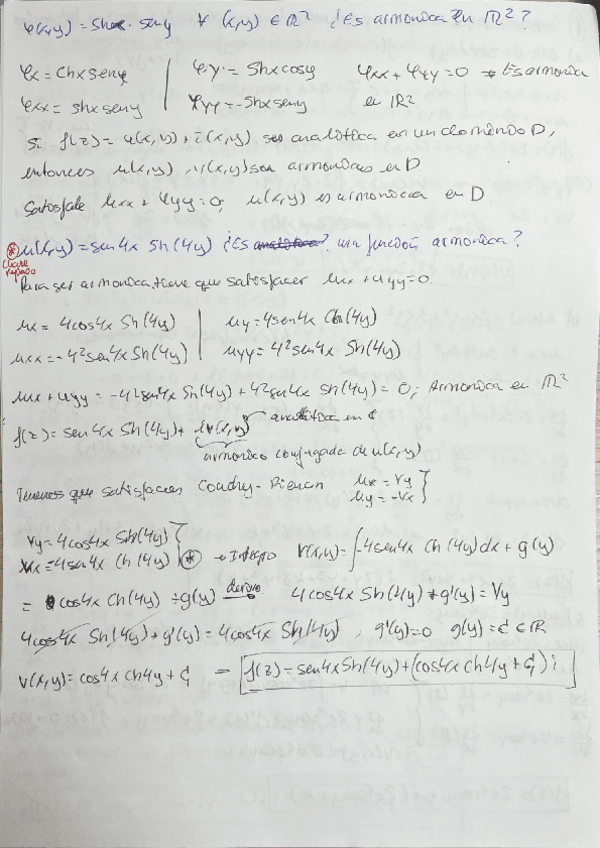 φ(x,y) = Shx · seny ∀ (x,y) ∈ ℝ² ¿Es armonica en ℝ²?
φx = Chx seny | φy = Shx cosy φxx + φyy = 0 → Es armonica
φxx = shx seny | φyy = -Shx seny en ℝ²
Si f(z) = u(x,y) + i(x,y) es analítica en un dominio D,
entonces u(x,y), v(x,y) son armonicas en D
Satisface uxx + uyy = 0; u(x,y) es armonica en D
* u(x,y) = sen4x Sh(4y) ¿Es analítica? una función armonica?
clase
Para ser armonica, tiene que satisfacer uxx + uyy = 0.
ux = 4cos4x Sh(4y) | uy = 4sen4x Ch(4y)
uxx = -4²sen4x Sh(4y) | uyy = 4²sen4x Sh(4y)
uxx + uyy = -4²sen4x Sh(4y) + 4²sen4x Sh(4y) = 0; Armonica en ℝ²
f(z) = sen4x Sh(4y) + iv(x,y) analítica en ℂ
armonico conjugada de u(x,y)
Tenemos que satisfacer Couchy-Rieman ux = vy
uy = -vx
vy = 4cos4x Sh(4y)
vx = -4sen4x Ch(4y) * → Integro v(x,y) = ∫-4sen4x Ch(4y)dx + g(y)
= cos4x Ch(4y) + g(y) derivo 4cos4x Sh(4y) + g'(y) = Vy
4cos4x Sh(4y) + g'(y) = 4cos4x Sh(4y), g'(y) = 0 g(y) = C ∈ ℝ
v(x,y) = cos4x Ch4y + C = f(z) = sen4x Sh(4y) + (cos4x Ch4y + C)i